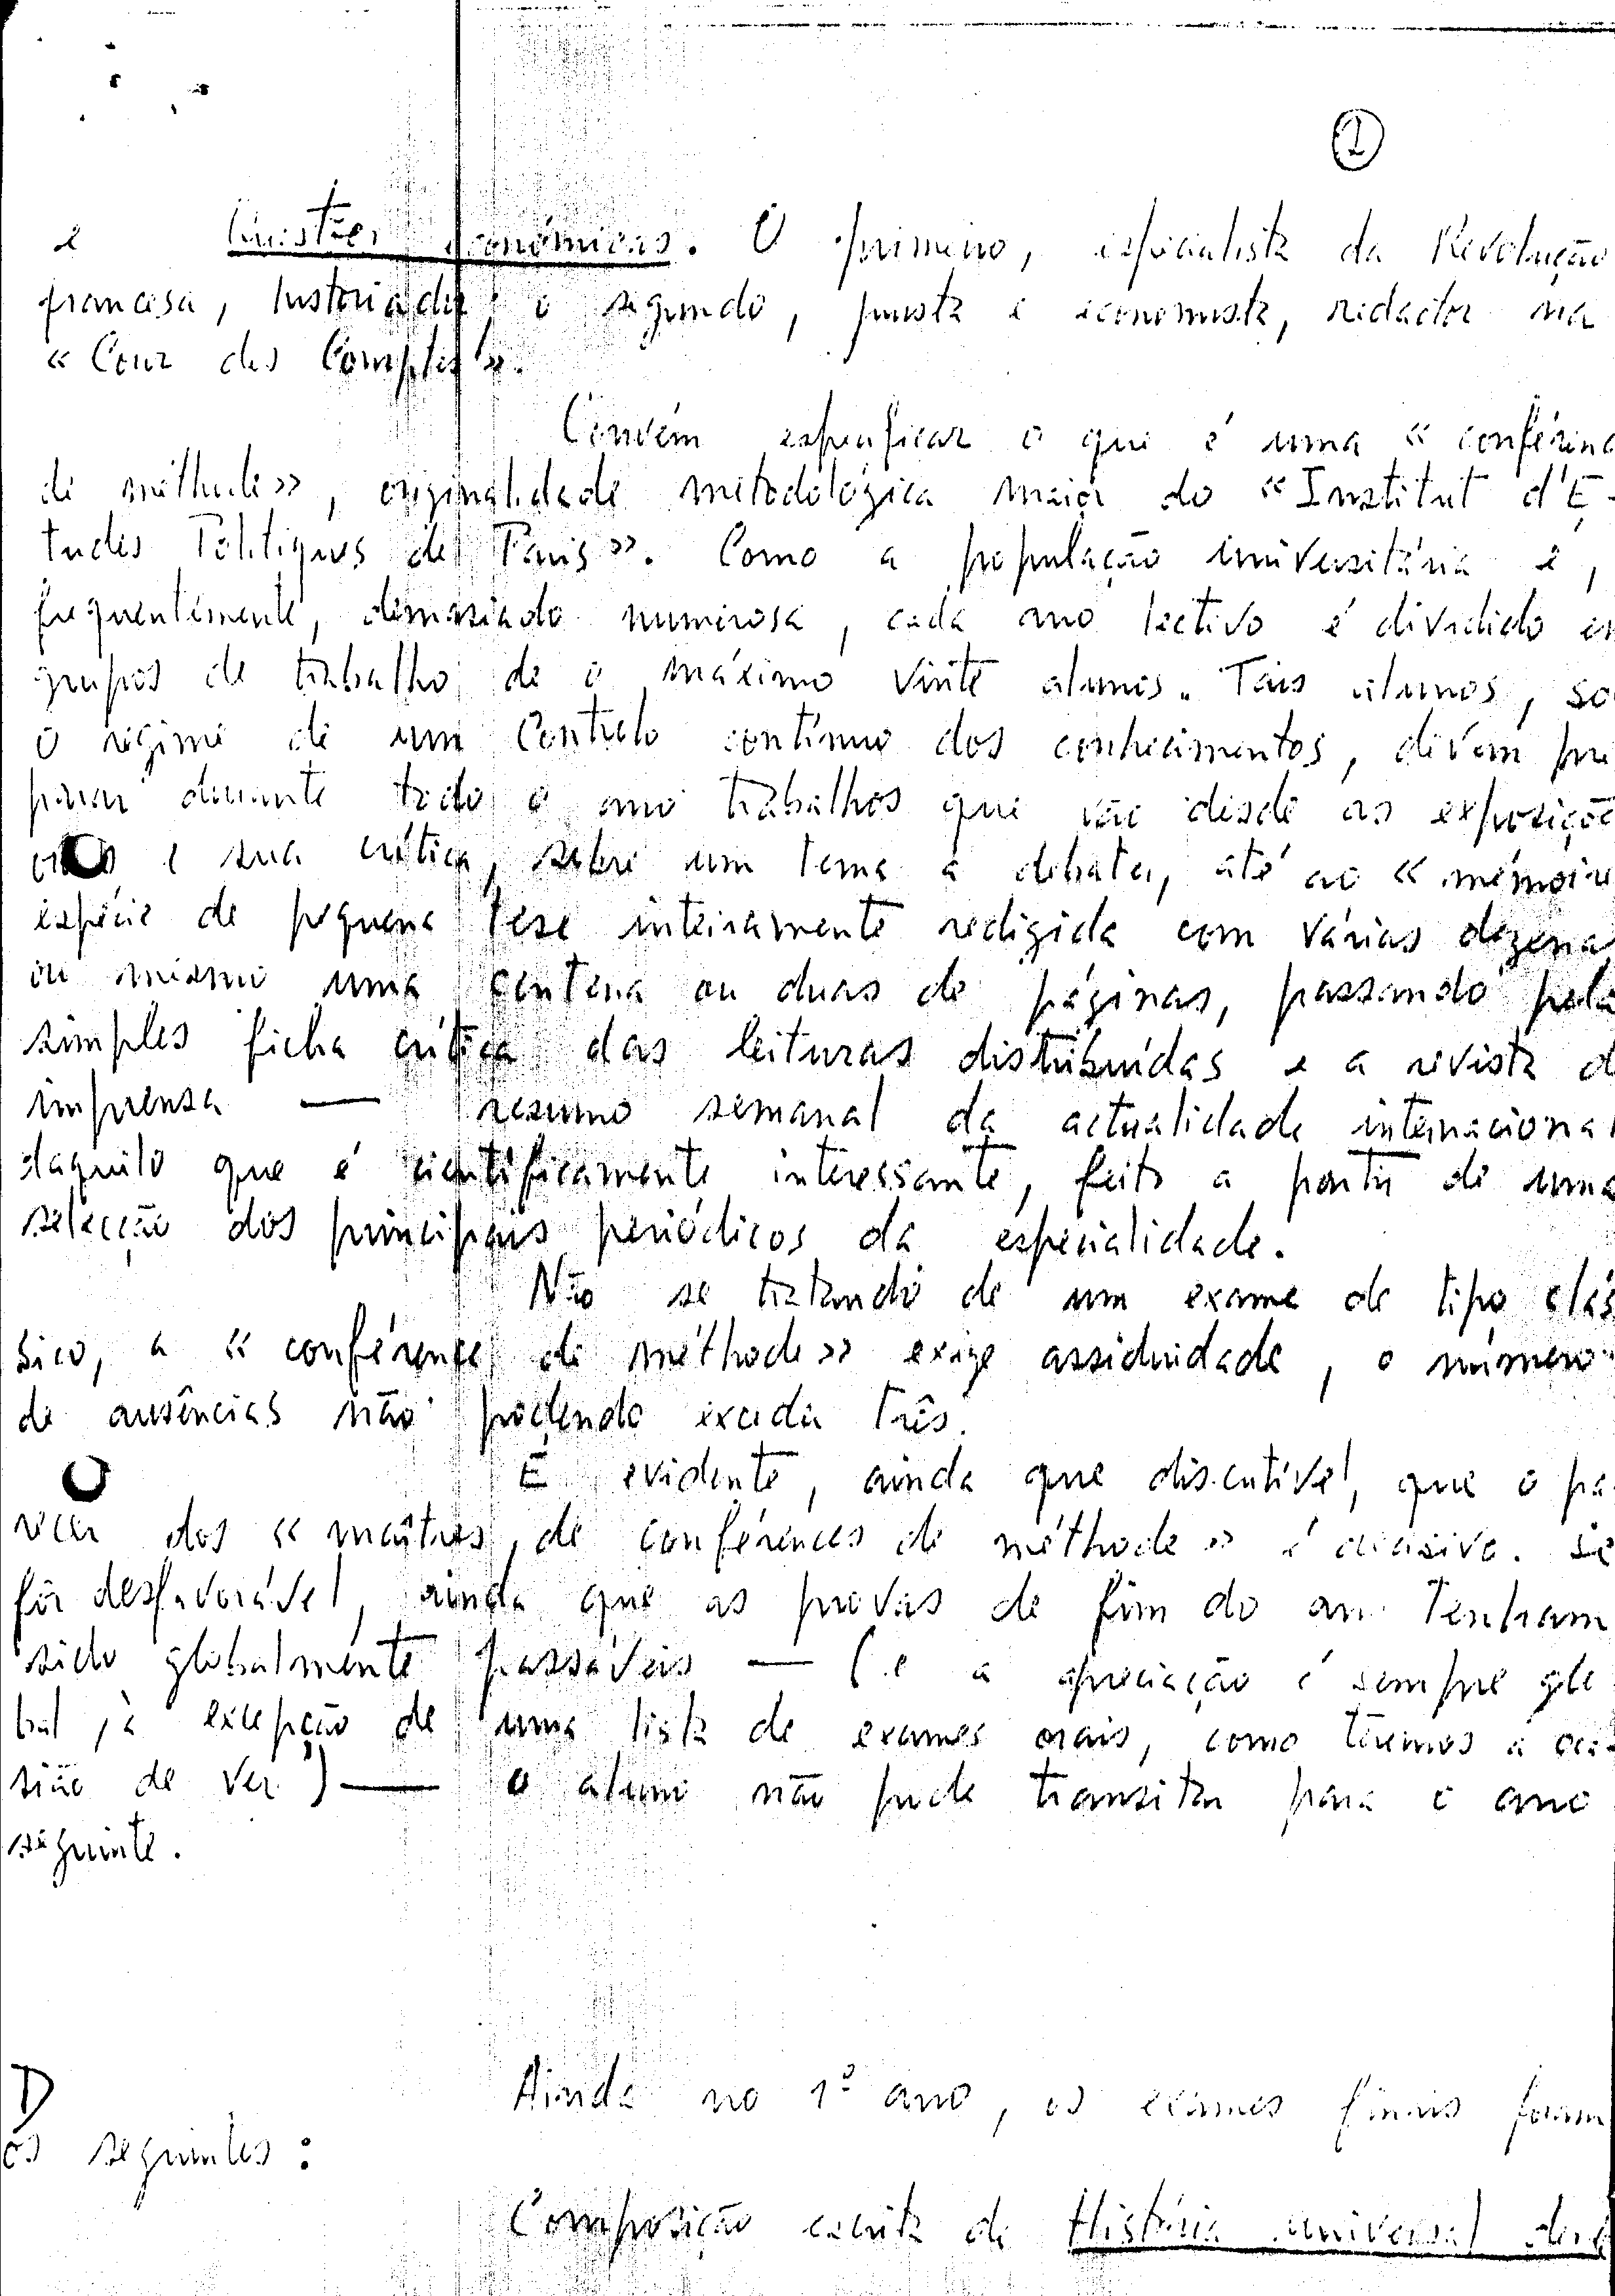 2
e Questões económicas. O primeiro, especialista da Revolução
francesa, historiador; o segundo, jurista e economista, redactor na
« Cour des Comptes ».
Convém especificar o que é uma « conférenc
de méthode », originalidade metodológica maior do « Institut d'E-
tudes Politiques de Paris ». Como a população universitária é,
frequentemente, demasiado numerosa, cada ano lectivo é dividido em
grupos de trabalho de o máximo vinte alunos. Tais alunos, so
o regime de um Controlo contínuo dos conhecimentos, devem pre
parar durante todo o ano trabalhos que vão desde as exposiçõe
orais e sua crítica, sobre um tema a debater, até ao « mémoire
espécie de pequena tese inteiramente redigida com várias dezena
ou mesmo uma centena ou duas de páginas, passando pela
simples ficha crítica das leituras distribuídas e a revista d
imprensa — resumo semanal da actualidade internacional
daquilo que é cientificamente interessante, feito a partir de uma
selecção dos principais periódicos da especialidade.
Não se tratando de um exame de tipo clás
sico, a « conférence de méthode » exige assiduidade, o número
de ausências não podendo exceder três.
É evidente, ainda que discutível, que o pa-
recer dos « maîtres de conférences de méthode » é decisivo. Se
fôr desfavorável, ainda que as provas de fim do ano tenham
sido globalmente passáveis — (e a apreciação é sempre glo
bal, à excepção de uma lista de exames orais, como teremos a oca-
sião de ver) — o aluno não pode transitar para o ano
seguinte.
D Ainda no 1º ano, os exames finais foram
os seguintes:
Composição escrita de História universal des